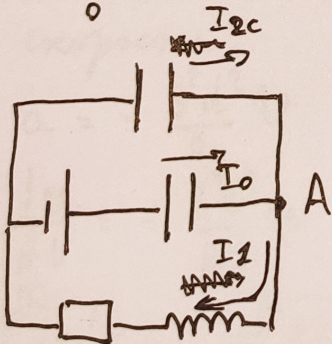 I2c
I0
A
I1